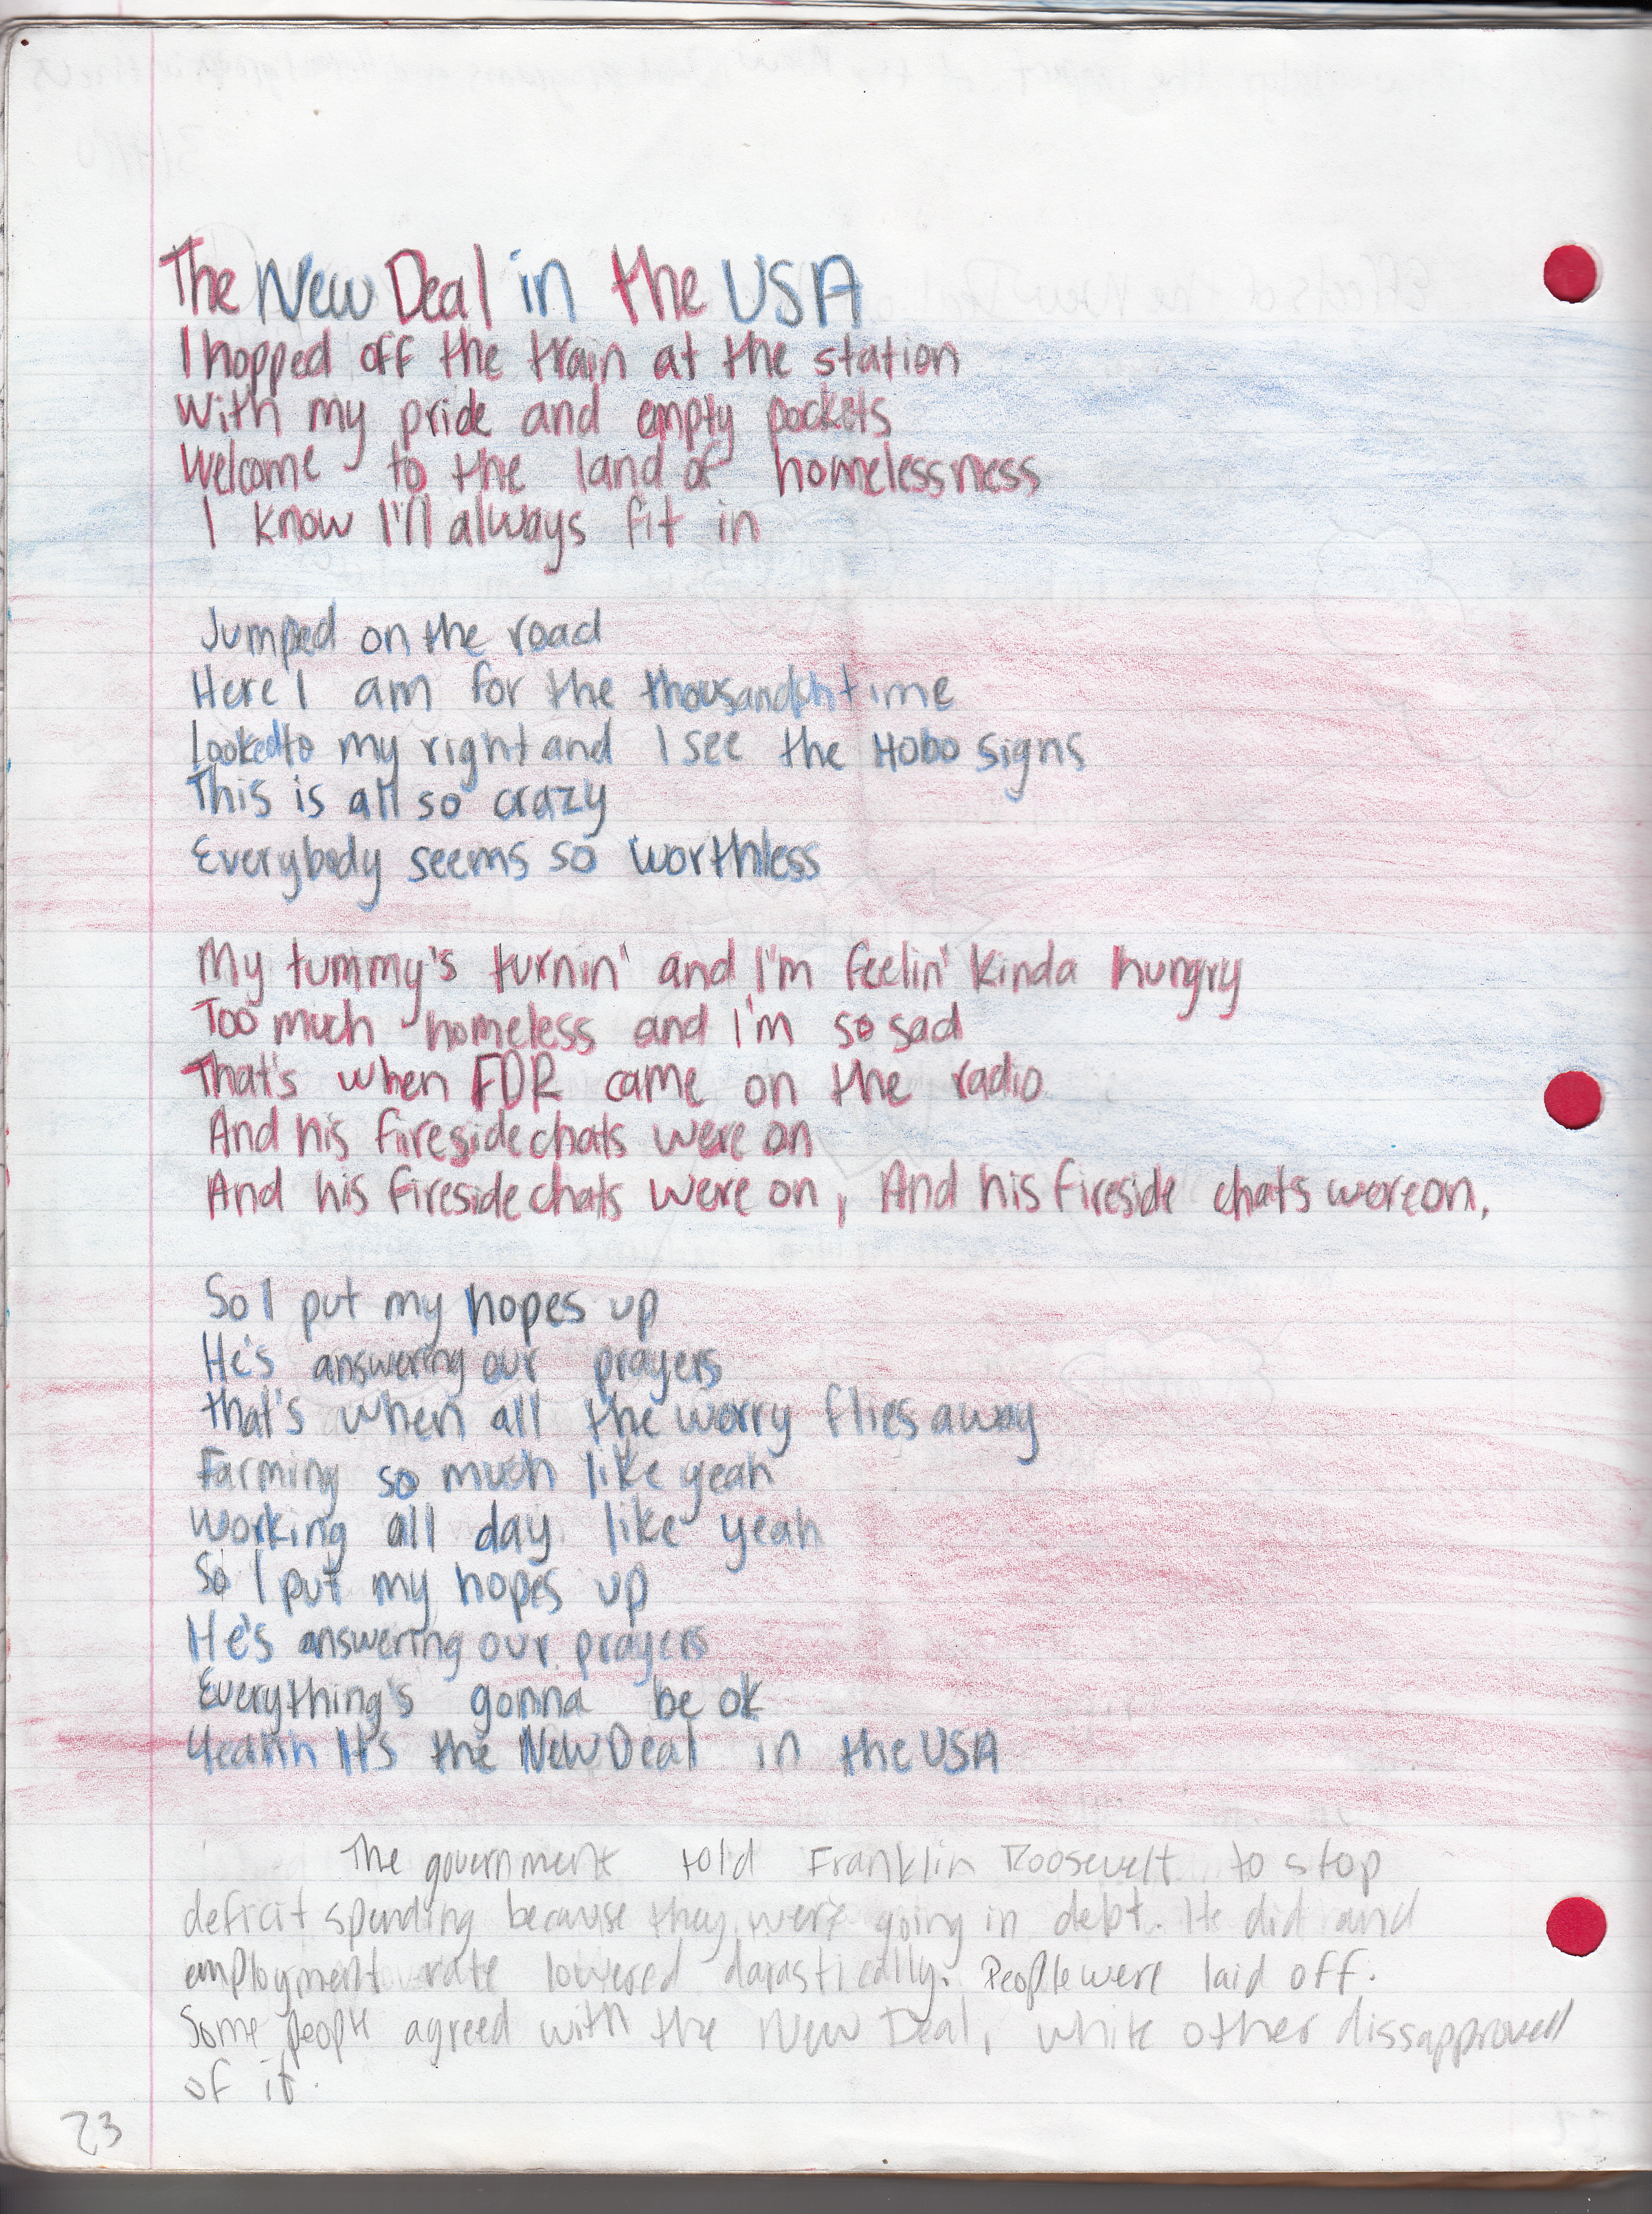 The New Deal in the USA
I hopped off the train at the station
With my pride and empty pockets
Welcome to the land of homelessness
I know I'll always fit in
Jumped on the road
Here I am for the thousandth time
Looked to my right and I see the Hobo signs
This is all so crazy
Everybody seems so worthless
My tummy's turnin' and I'm feelin' kinda hungry
Too much homeless and I'm so sad
That's when FDR came on the radio
And his fireside chats were on
And his fireside chats were on, And his fireside chats were on,
So I put my hopes up
He's answering our prayers
that's when all the worry flies away
Farming so much like yeah
working all day like yeah
So I put my hopes up
He's answering our prayers
Everything's gonna be ok
Yeahhh It's the New Deal in the USA
The government told Franklin Roosevelt to stop
deficit spending because they were going in debt. He did and
employment rate lowered darastically. People were laid off.
Some people agreed with the New Deal, while other dissapproved
of it.
23